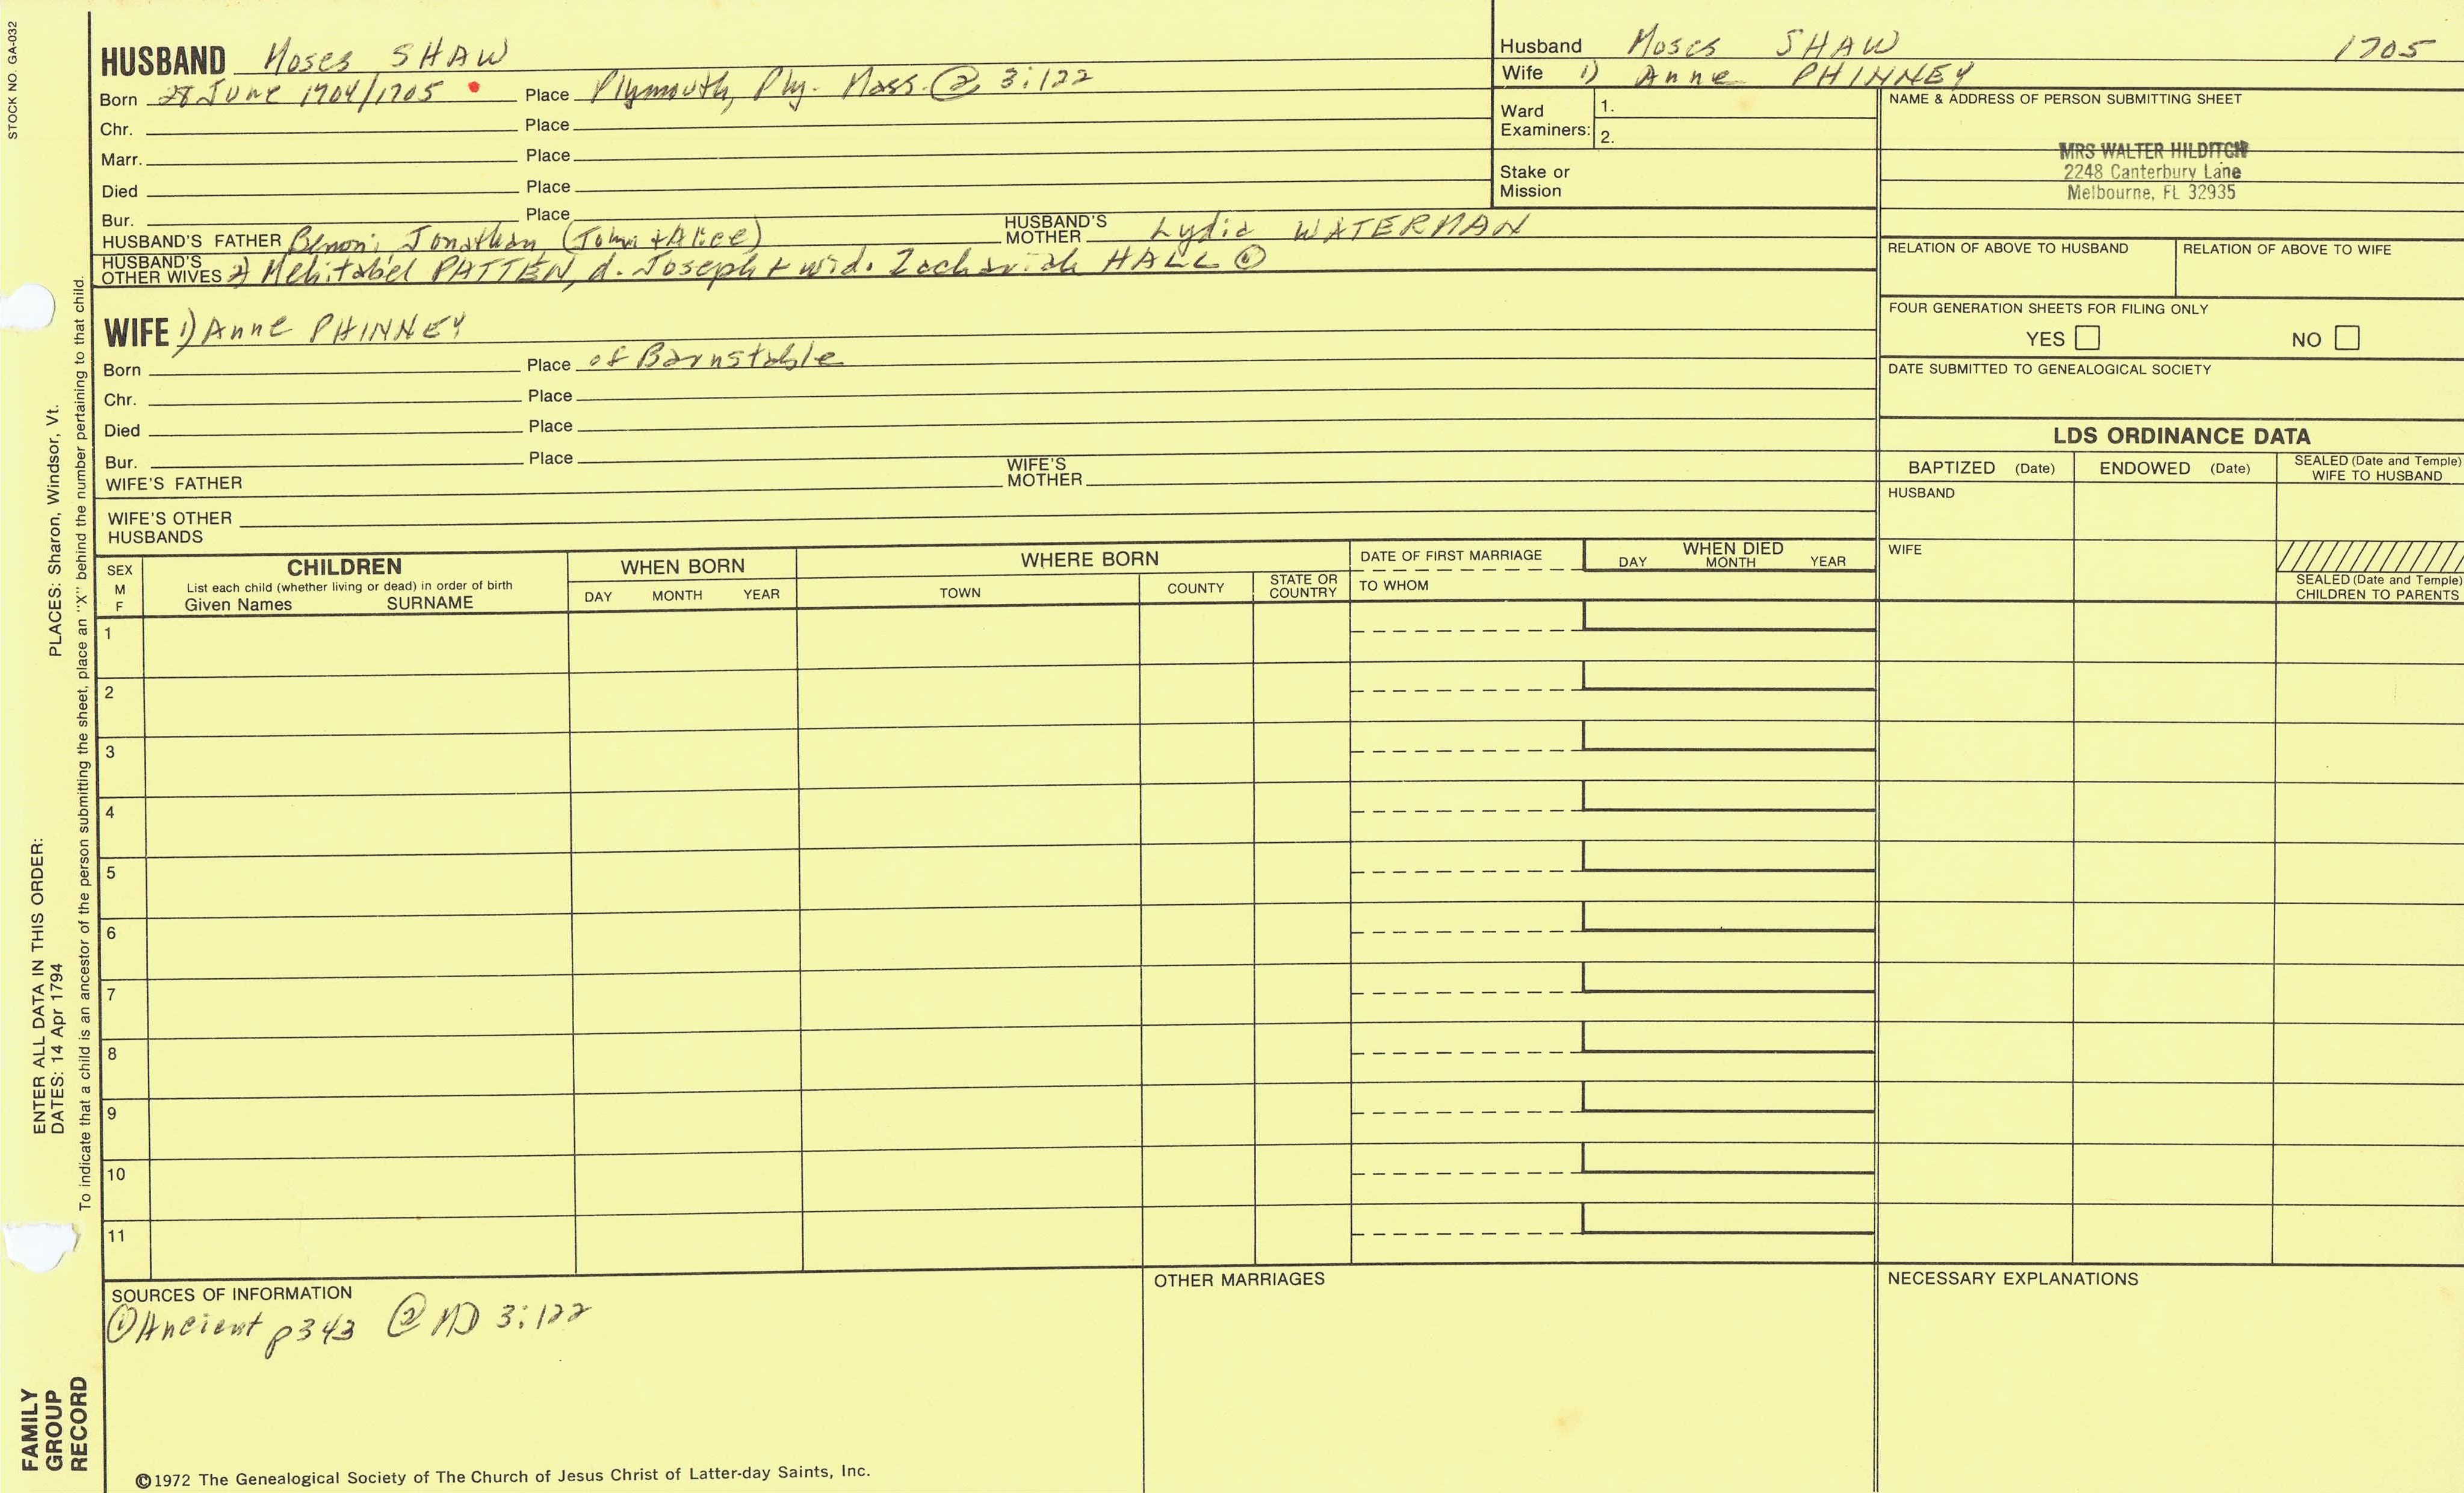 STOCK NO. GA-032
HUSBAND Moses SHAW
Born 28 June 1704/1705 Place Plymouth, Ply. Mass. ② 3:122
Chr. Place
Marr. Place
Died Place
Bur. Place
HUSBAND'S FATHER Benoni Jonathan (John + Alice) HUSBAND'S MOTHER Lydia WATERMAN
HUSBAND'S OTHER WIVES 2) Mehitabel PATTEN, d. Joseph + wid. Zachariah HALL ①
WIFE 1) Anne PHINNEY
Born Place of Barnstable
Chr. Place
Died Place
Bur. Place
WIFE'S FATHER WIFE'S MOTHER
WIFE'S OTHER HUSBANDS
Husband Moses SHAW 1705
Wife 1) Anne PHINNEY
Ward Examiners: 1.
2.
Stake or Mission
NAME & ADDRESS OF PERSON SUBMITTING SHEET
MRS WALTER HILDITCH
2248 Canterbury Lane
Melbourne, FL 32935
RELATION OF ABOVE TO HUSBAND RELATION OF ABOVE TO WIFE
FOUR GENERATION SHEETS FOR FILING ONLY
YES NO
DATE SUBMITTED TO GENEALOGICAL SOCIETY
LDS ORDINANCE DATA
BAPTIZED (Date) ENDOWED (Date) SEALED (Date and Temple) WIFE TO HUSBAND
HUSBAND
WIFE
SEALED (Date and Temple) CHILDREN TO PARENTS
SEX M F
CHILDREN
List each child (whether living or dead) in order of birth
Given Names SURNAME
WHEN BORN
DAY MONTH YEAR
WHERE BORN
TOWN COUNTY STATE OR COUNTRY
DATE OF FIRST MARRIAGE
TO WHOM
WHEN DIED
DAY MONTH YEAR
1
2
3
4
5
6
7
8
9
10
11
SOURCES OF INFORMATION
① Ancient p343 ② MD 3:122
OTHER MARRIAGES
NECESSARY EXPLANATIONS
©1972 The Genealogical Society of The Church of Jesus Christ of Latter-day Saints, Inc.
FAMILY GROUP RECORD
ENTER ALL DATA IN THIS ORDER:
DATES: 14 Apr 1794 PLACES: Sharon, Windsor, Vt.
To indicate that a child is an ancestor of the person submitting the sheet, place an "X" behind the number pertaining to that child.